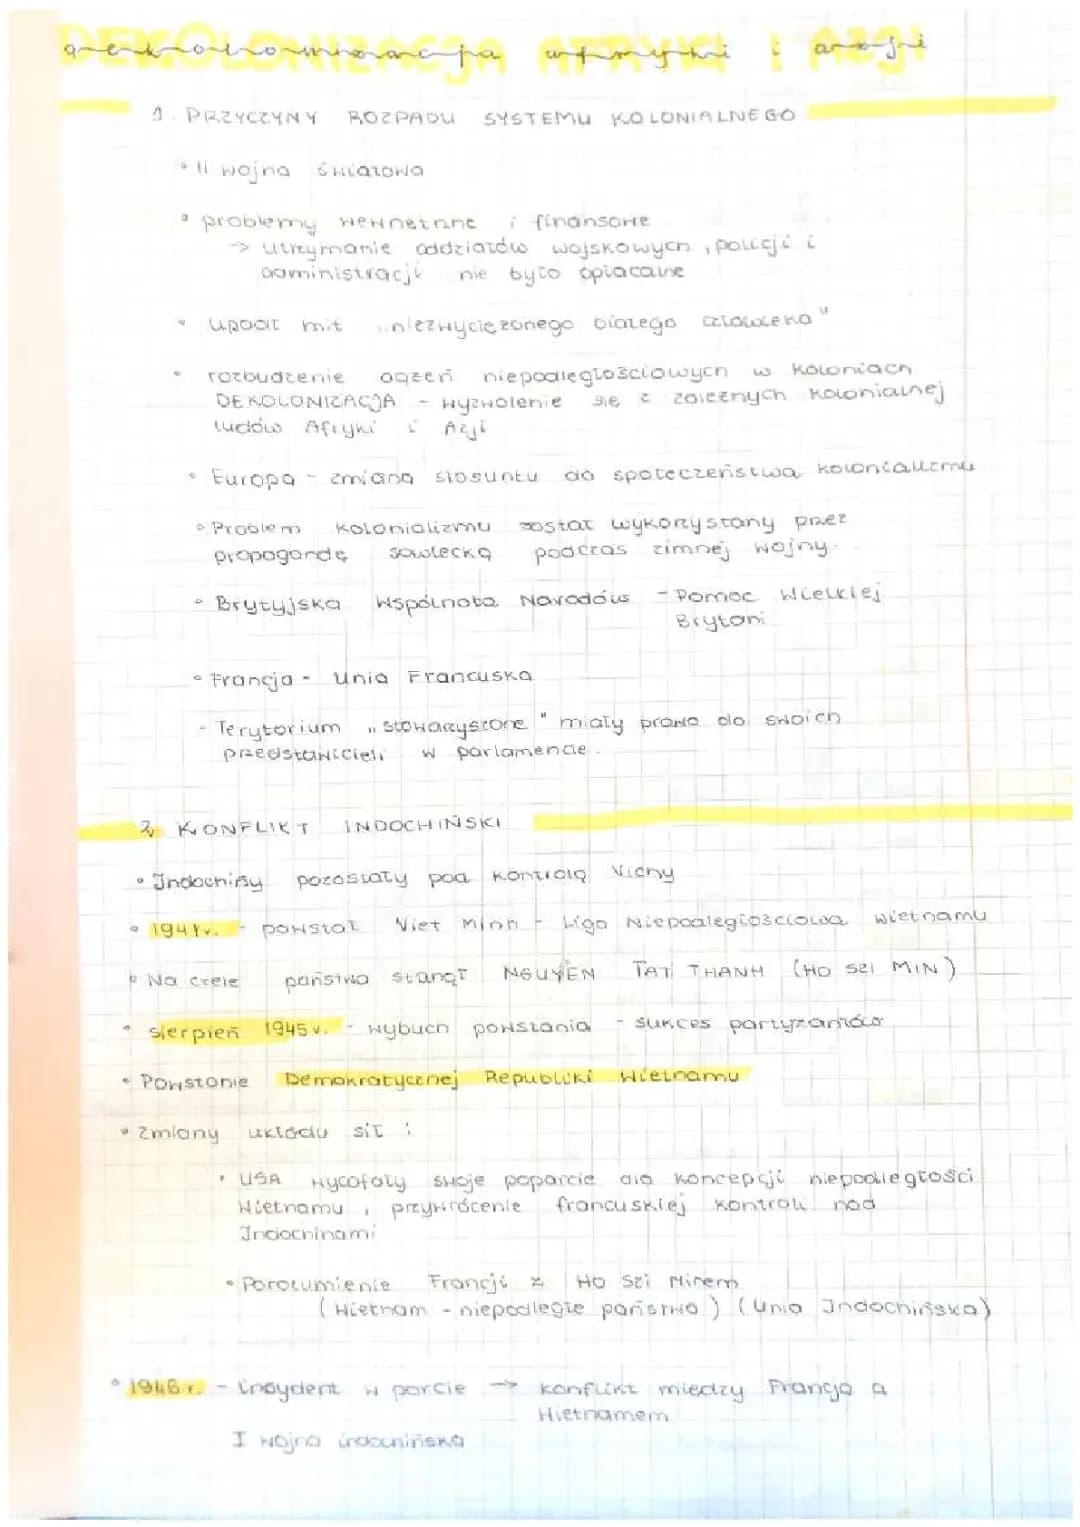 DEKOLONIZACJA AFRYKI i AZJI
dekolonizacja afryki i azji
1. PRZYCZYNY ROZPADU SYSTEMU KOLONIALNEGO
• II wojna światowa
• problemy wewnętrzne i finansowe
→ utrzymanie oddziałów wojskowych, policji i
administracji nie było opłacalne
• upadł mit „niezwyciężonego białego człowieka"
• rozbudzenie dążeń niepodległościowych w koloniach
DEKOLONIZACJA - wyzwolenie się z zależnych kolonialnej
ludów Afryki i Azji
• Europa - zmiana stosunku do społeczeństwa kolonializmu
• Problem kolonializmu został wykorzystany przez
propagandę sowiecką podczas zimnej wojny.
• Brytyjska Wspólnota Narodów - Pomoc Wielkiej
Brytani
• Francja - Unia Francuska
- Terytorium „stowarzyszone" miały prawo do swoich
przedstawicieli w parlamencie.
2. KONFLIKT INDOCHIŃSKI
• Indochiny pozostały pod kontrolą Vichy
• 1941r. - powstał Viet Minh - Liga Niepodległościowa wietnamu
• Na czele państwa stanął NGUYEN TAT THANH (HO SZI MIN)
• sierpień 1945r. - wybuch powstania - sukces partyzantów
• Powstanie Demokratycznej Republiki Wietnamu
• zmiany układu sił :
• USA wycofały swoje poparcie dla koncepcji niepodległości
Wietnamu, przywrócenie francuskiej kontroli nad
Indochinami
• Porozumienie Francji z Ho Szi Minem
(Wietnam - niepodległe państwo) (Unia Indochińska)
• 1946r. - incydent w porcie → konflikt między Francją a
Wietnamem
I wojna indochińska